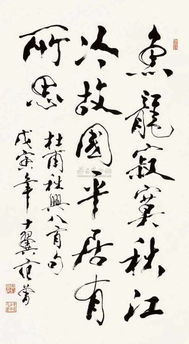 魚龍寂寞秋江
冷故國平居有
所思
杜甫秋興八首句
戊寅年十翼范曾